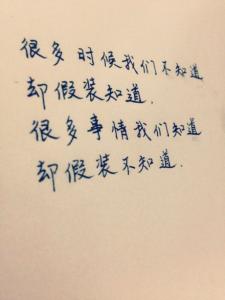 很多时候我们不知道
却假装知道.
很多事情我们知道
却假装不知道.